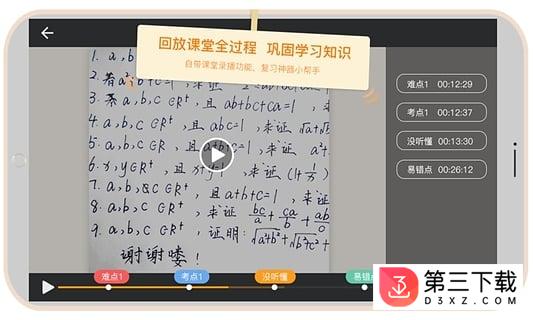 回放课堂全过程 巩固学习知识
自带课堂录播功能、复习神器小帮手
1. a, b
3. 若 a, b, c ∈R⁺, 且 ab+bc+ca=1
4. a, b, c ∈R⁺, 且 abc=1, 求证
5. a, b, c ∈R⁺, 且 a+b+c=1, 求证
6. x, y∈R⁺, 且
7. a, b, c ∈R⁺, 且 a+b+c=1, 求证
8. a, b, c ∈R⁺, 求证 bc/a + ca/b + ab/
9. a, b, c ∈R⁺, 证明: √a²+b² +
谢谢喽！
难点1 00:12:29
考点1 00:12:37
没听懂 00:13:30
易错点 00:26:12
难点1
考点1
没听懂
易错点
第三下载
D3XZ.COM